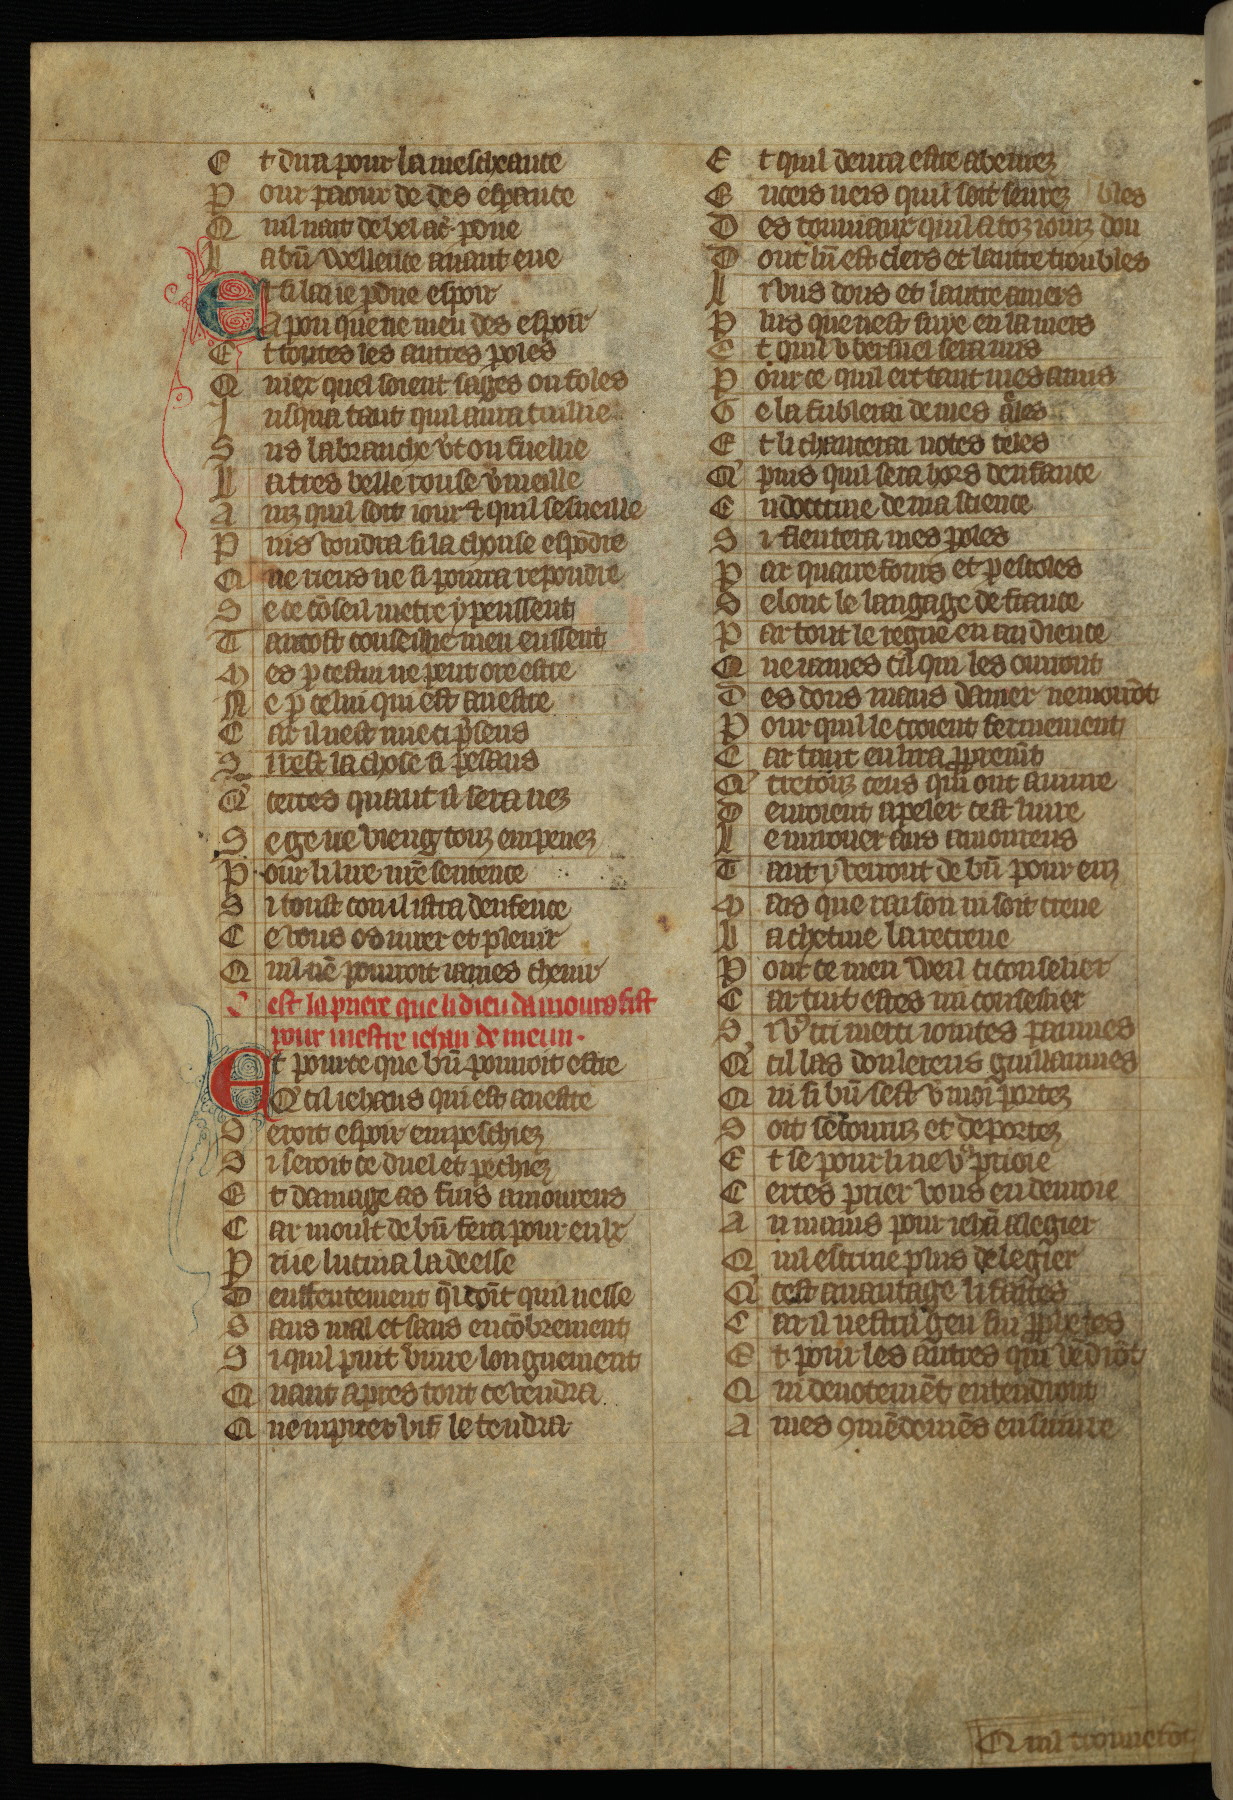 E t dira pour la mescheance
P our paour de des esperance
Q uil nait de bel ac̄ poue
L a bn̄ voellence auant eue
E t si lai ie p̄due espoir
A poy que ne men des espoir
E t toutes les autres roses
Q uier quel soient sages ou foles
J usqua tant quil aura cuillie
S us la branche vert ou fuellie
L a tres belle rouse v̄meille
A inz quil soit iour ⁊ quil sesueille
P uis voudra si la chouse espōdre
Q ue riens ne si pourra repondre
S e ce cōseil metre y peussent
T antost conseillie men eussent
M es p cestui ne peut ore estre
N e p celui qui est a nestre
C ar il nest mie ci p̄sens
S i rest la chose si pesans
Q' certes quant il sera nez
S e ge ne vieng touz empenez
P our li lire nrē sentence
S i toust com il istra denfence
C e vous os iurer et plenir
Q uil nē pourroit iames chenir
C est la priere que li dieu damours fist
pour mestre iehan de meun.
E t pource que bn̄ pourroit estre
Q' cil iehans qui est a nestre
S eroit espoir empeschiez
S i seroit ce duel et pechiez
E t damage as fins amoureus
C ar moult de bn̄ fera pour eulx
P rie lucina la deesse
D enffentement q̄ doīt quil nesse
S ans mal et sans encōbrement
S i quil puit viure longuement
Q uant apres tout ce vendra
Q ue iupiter vif le tendra
E t quil deura estre abeurez
E inceis neis quil soit seurez bles
D es tonniaux quil a toz iourz dou
D ont lun est clers et lautre troubles
L i vns dous et lautre amers
P lus que nest suye en la mers
E t quil v berssuel sera mis
P our ce quil ert tant mes amis
G e la fublerai de mes ales
E t li chanterai notes teles
Q' puis quil sera hors denfance
E ndoctrine de ma science
S i fleutera mes poles
P ar quarrefours et p escoles
S elonc le langage de france
P ar tout le regne en audience
Q ue iames cil qui les ourront
D es dous maus damer ne mourrōt
P our quil le croient fermement
C ar tant en lira pprement
Q' tretouz ceus qui ont a viure
D euroient apeler cest liure
L e mirouer aus amoureus
T ant y verront de bn̄ pour eus
M ais que raison ni soit creue
L a chetiue la recreue
P our ce men voeil ci conseiler
C ar tuit estes mi conseiller
S i vꝰ cri merci iointes paumes
Q' cil las doulereus guillaumes
Q ui si bn̄ sest v̄ moi portez
S oit secouruz et deportez
E t se pour li ne vꝰ prioie
C ertes prier vous en deuroie
A u mains pour iehā alegier
Q uil escriue plus de legier
Q' cest auantage li faites
C ar il nestra gen sui pphetes
E t pour les autres qui vēdrōt
Q ui deuotemēt entendront
A mes cōmēdemēs ensuiure
Q uil trouuerōt